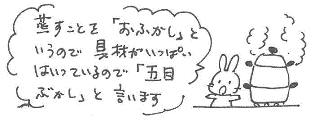 蒸すことを「おふかし」と
いうので 具材がいっぱい
はいっているので「五目
ぶかし」と言います